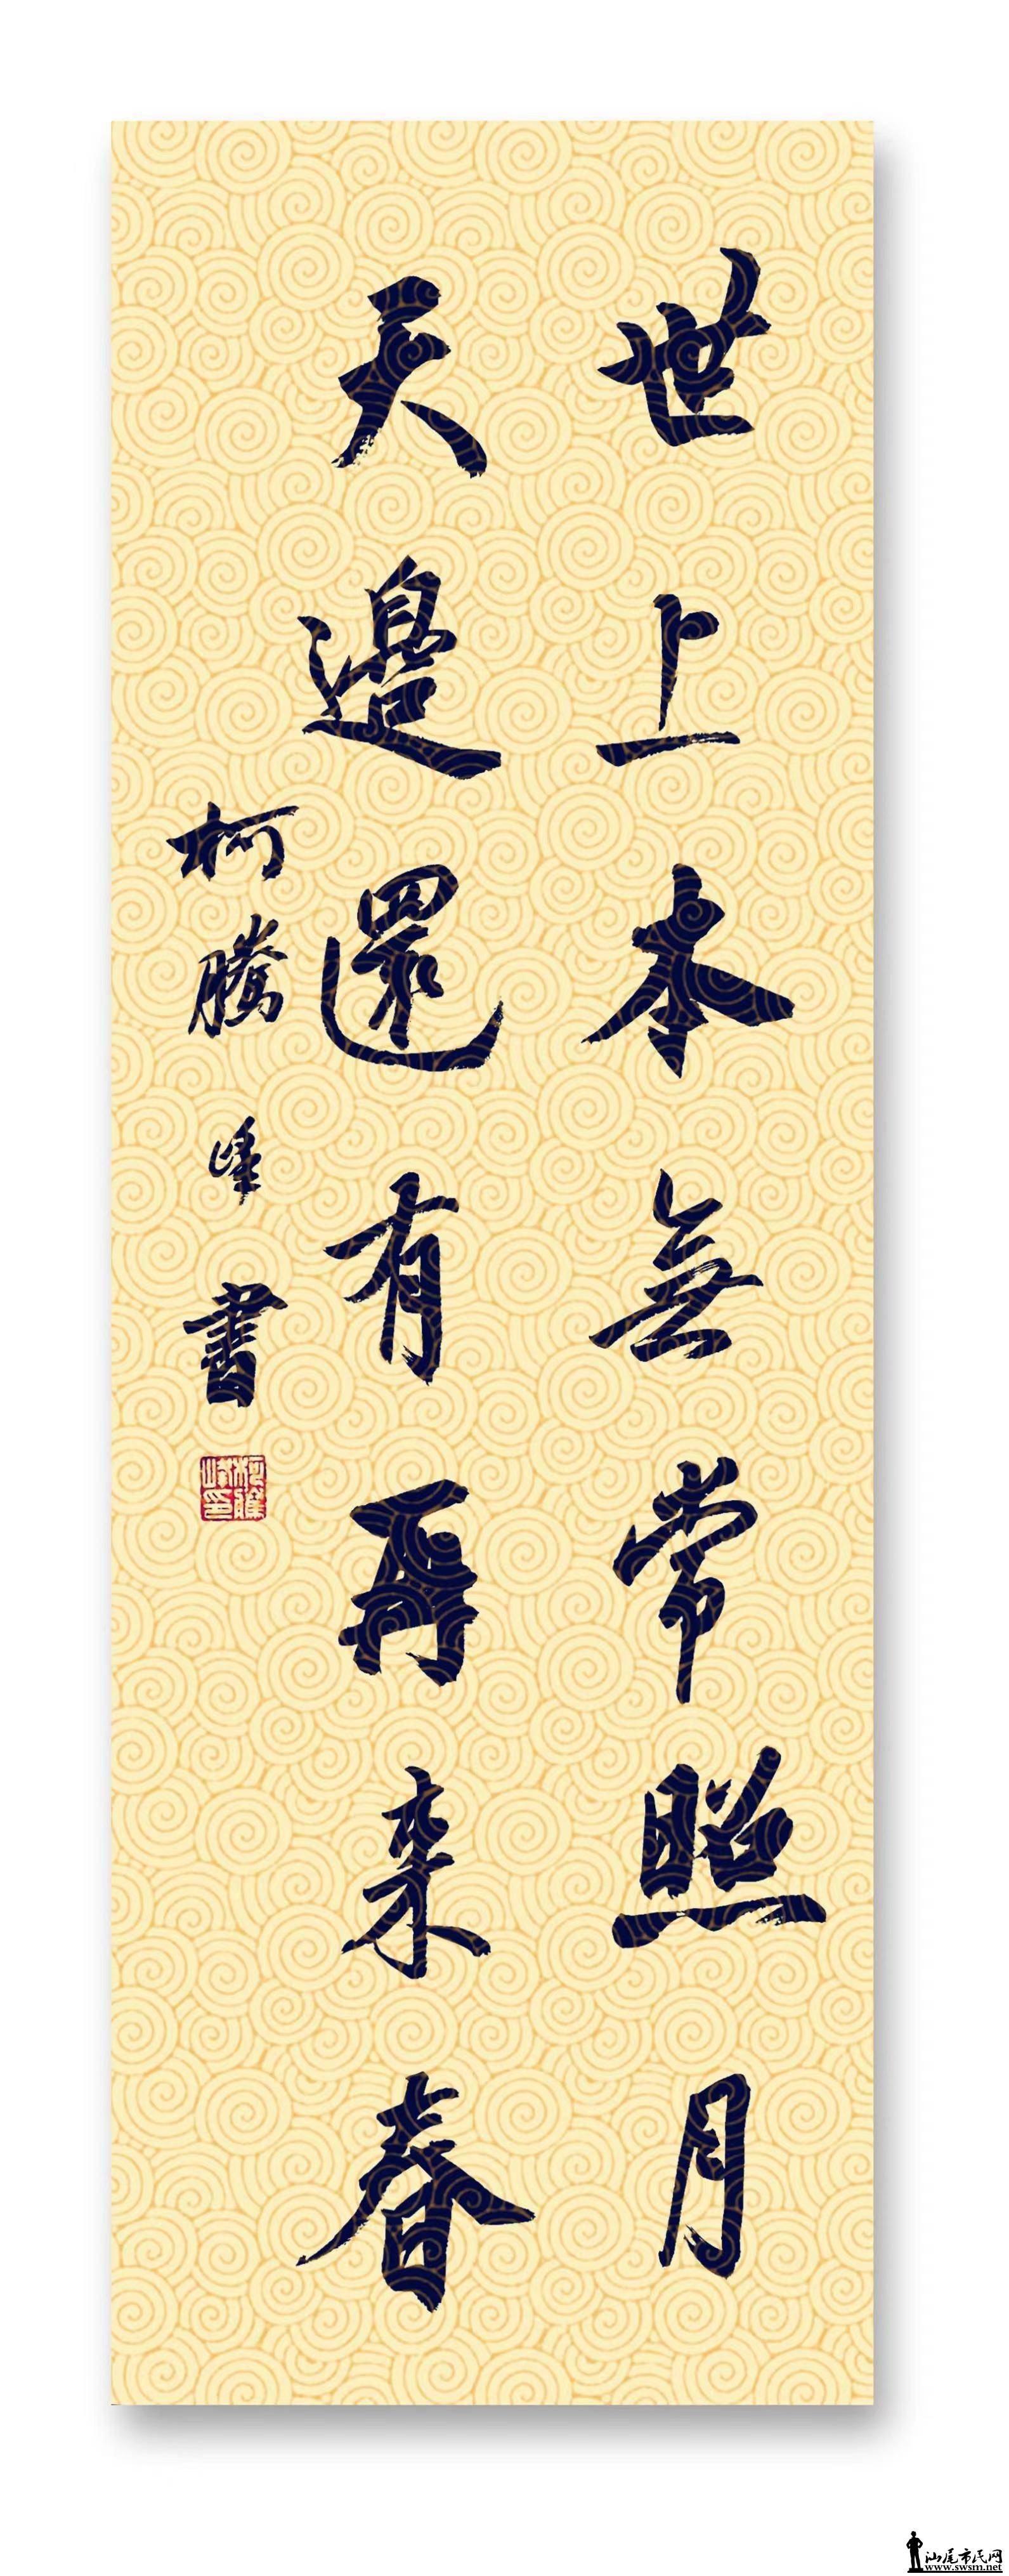 世上本無常照月
天邊還有再来春
柯騰峰書
柯騰峰印
汕尾市民网
www.swsm.net